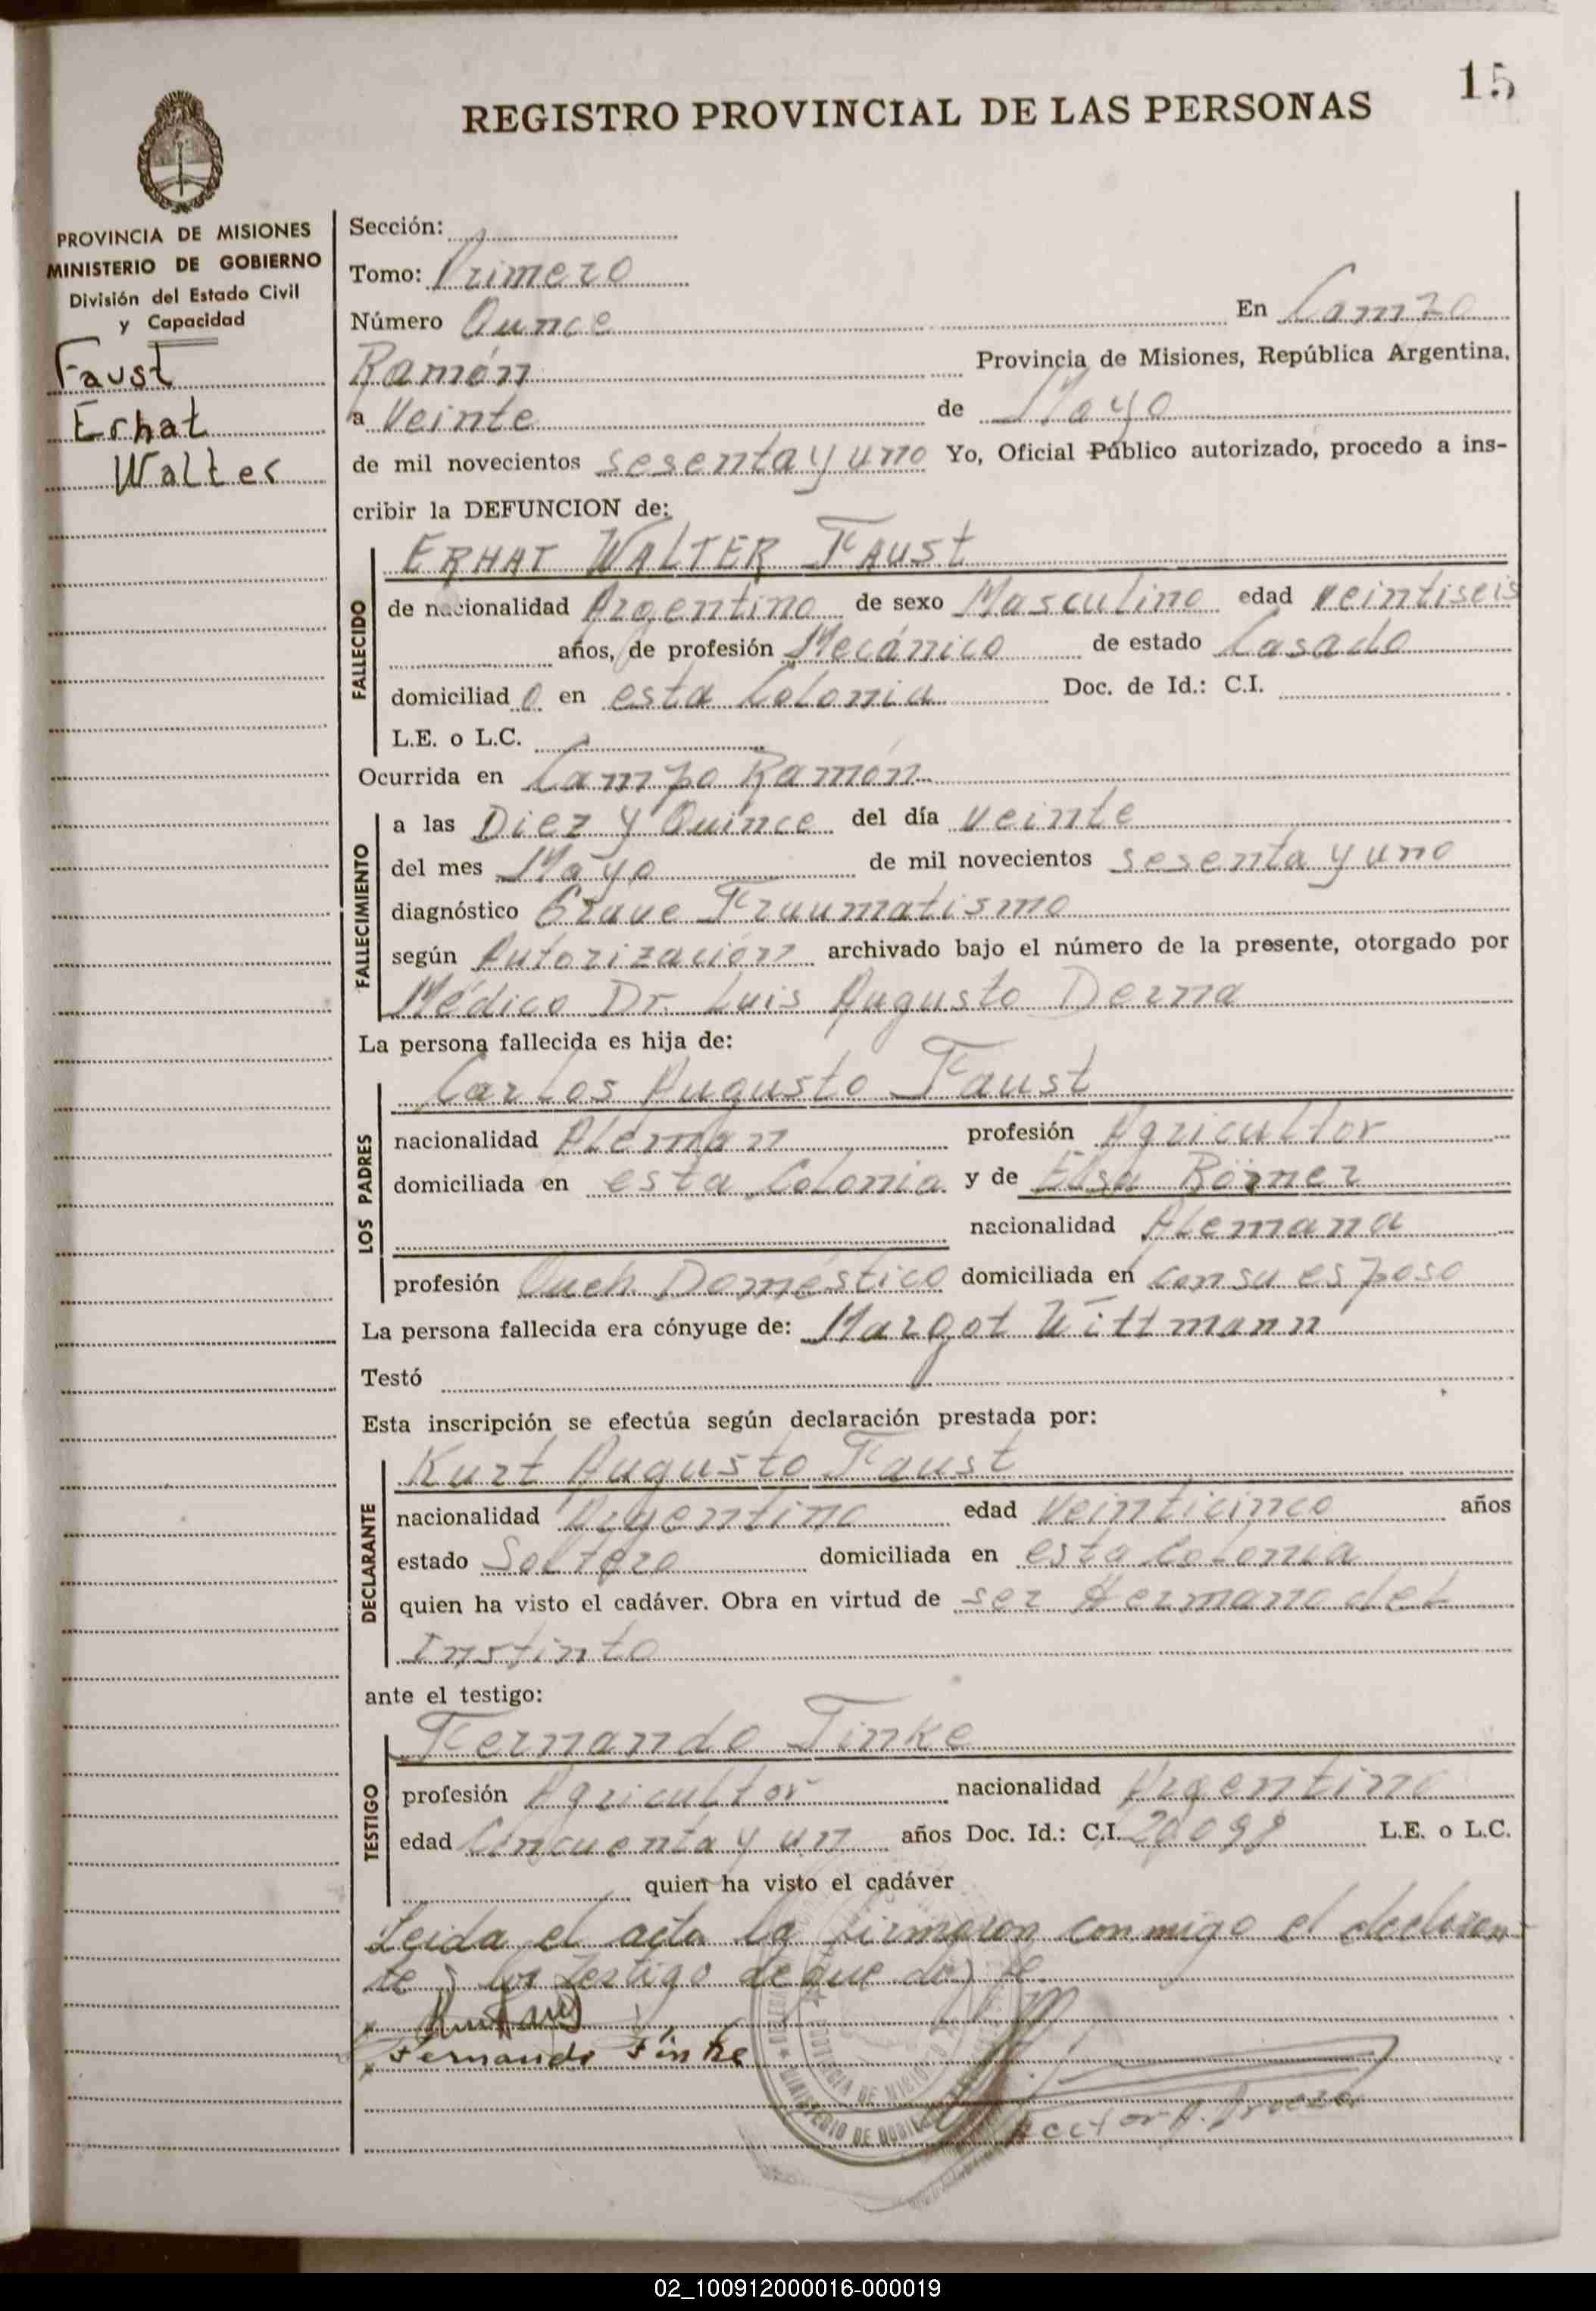 15
REGISTRO PROVINCIAL DE LAS PERSONAS
PROVINCIA DE MISIONES
MINISTERIO DE GOBIERNO
División del Estado Civil
y Capacidad
Faust
Erhat
Walter
Sección:
Tomo: Primero
Número Quince En Campo
Ramón Provincia de Misiones, República Argentina,
a Veinte de Mayo
de mil novecientos sesenta y uno Yo, Oficial Público autorizado, procedo a ins-
cribir la DEFUNCION de:
ERHAT WALTER FAUST
FALLECIDO
de nacionalidad Argentino de sexo Masculino edad veintiseis
años, de profesión Mecánico de estado Casado
domiciliad o en esta Colonia Doc. de Id.: C.I.
L.E. o L.C.
Ocurrida en Campo Ramón
FALLECIMIENTO
a las Diez y Quince del día veinte
del mes Mayo de mil novecientos sesenta y uno
diagnóstico Grave Traumatismo
según Autorización archivado bajo el número de la presente, otorgado por
Médico Dr. Luis Augusto Derna
La persona fallecida es hija de:
Carlos Augusto Faust
LOS PADRES
nacionalidad Aleman profesión Agricultor
domiciliada en esta Colonia y de Elsa Börner
nacionalidad Alemana
profesión Queh. Doméstico domiciliada en con su esposo
La persona fallecida era cónyuge de: Margot Wittmann
Testó
Esta inscripción se efectúa según declaración prestada por:
Kurt Augusto Faust
DECLARANTE
nacionalidad Argentino edad veinticinco años
estado Soltero domiciliada en esta colonia
quien ha visto el cadáver. Obra en virtud de ser Hermano del
Instinto
ante el testigo:
Fernando Finke
TESTIGO
profesión Agricultor nacionalidad Argentino
edad Cincuenta y un años Doc. Id.: C.I. 20098 L.E. o L.C.
quien ha visto el cadáver
Leida el acta la firmaron conmigo el declaran-
te y los testigo de que doy fe.
Fernando Finke
PROVINCIA DE MISIONES
MINISTERIO DE GOBIERNO
02_100912000016-000019